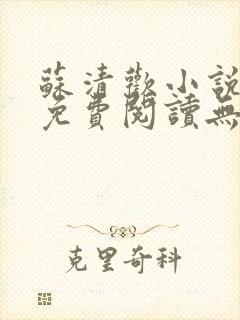 蘇清歡小說
免費閱讀無
克里奇科